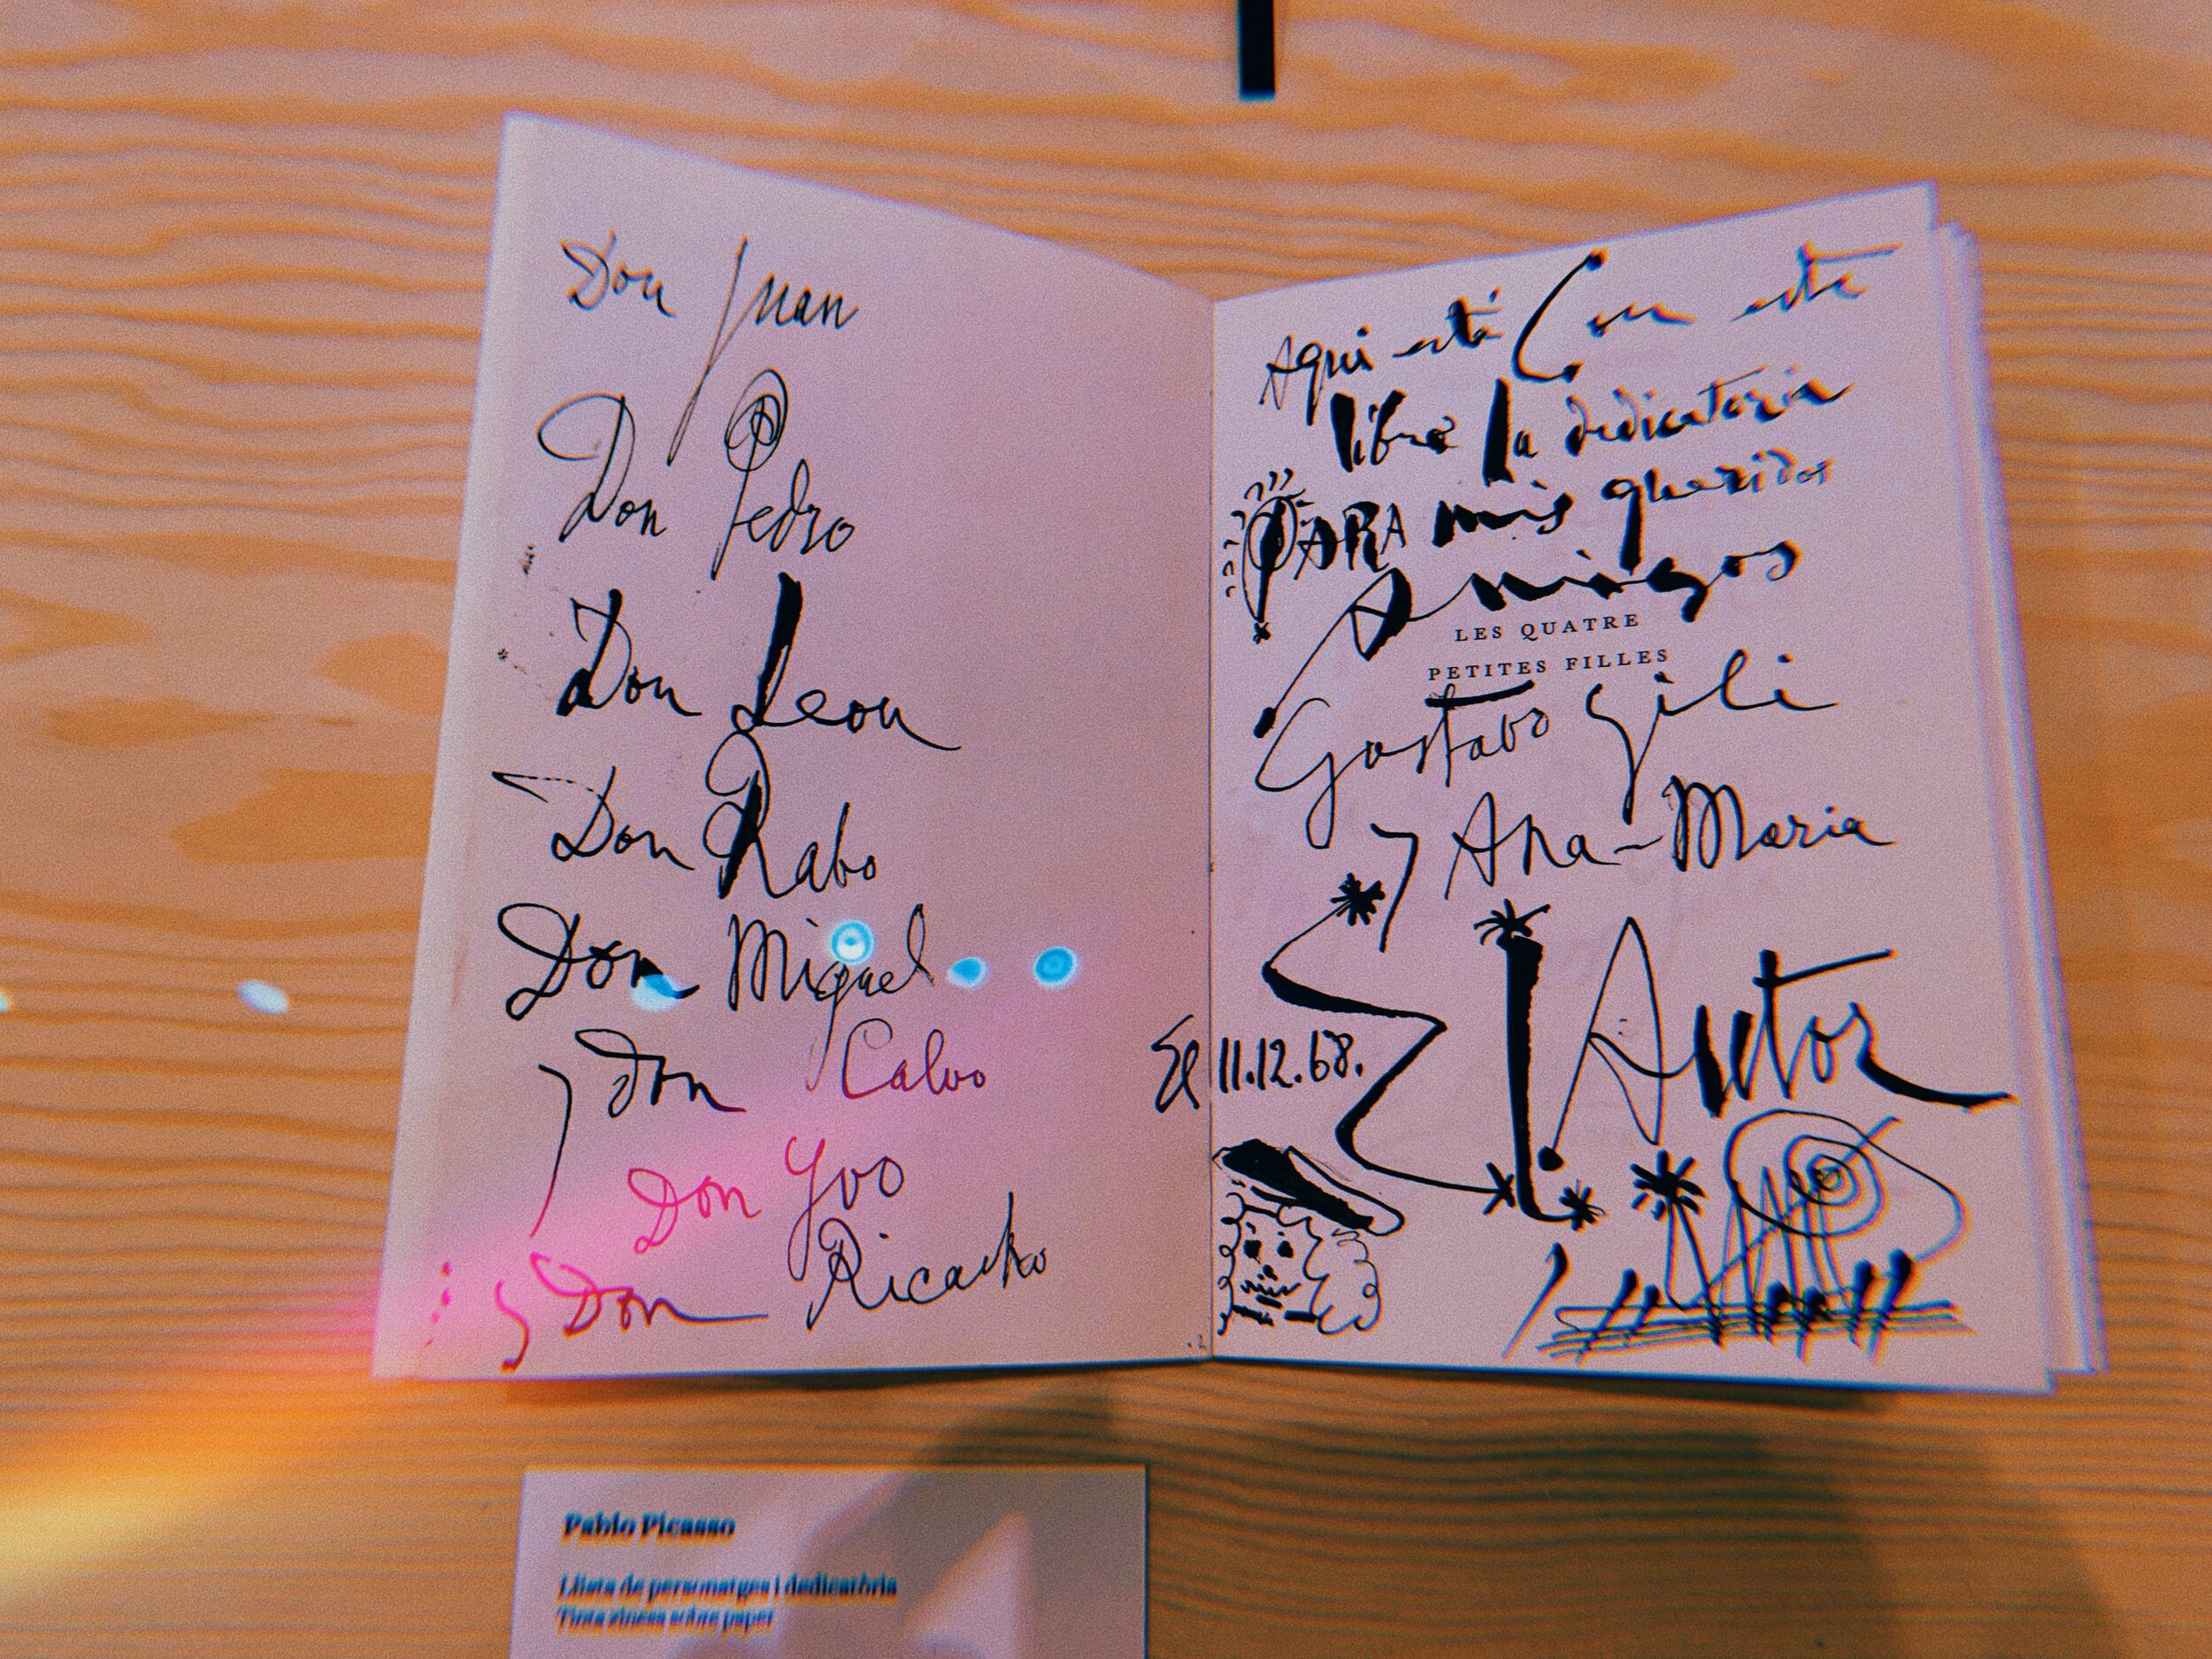 Don Juan
Don Pedro
Don Leon
Don Rabo
Don Miguel
y don Calvo
Don Yvo
y Don Ricacho
Aqui está Con este
libro la dedicatoria
PARA mis queridos
Amigos
LES QUATRE
PETITES FILLES
Gustavo Gili
y Ana-Maria
l Autor
El 11.12.68.
Pablo Picasso
Llista de personatges i dedicatòria
Tinta xinesa sobre paper